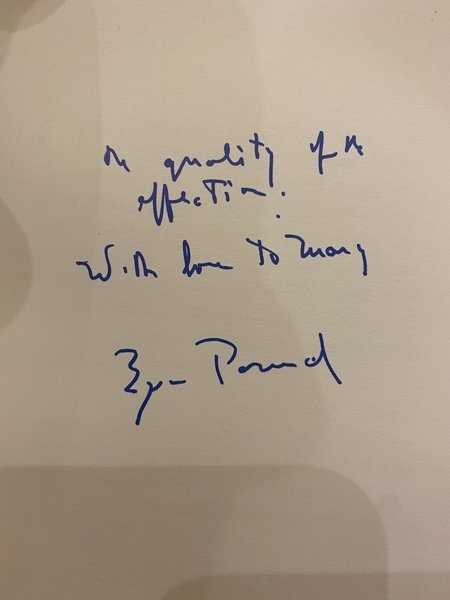 the quality of the
affection.
With love to Mary
Ezra Pound